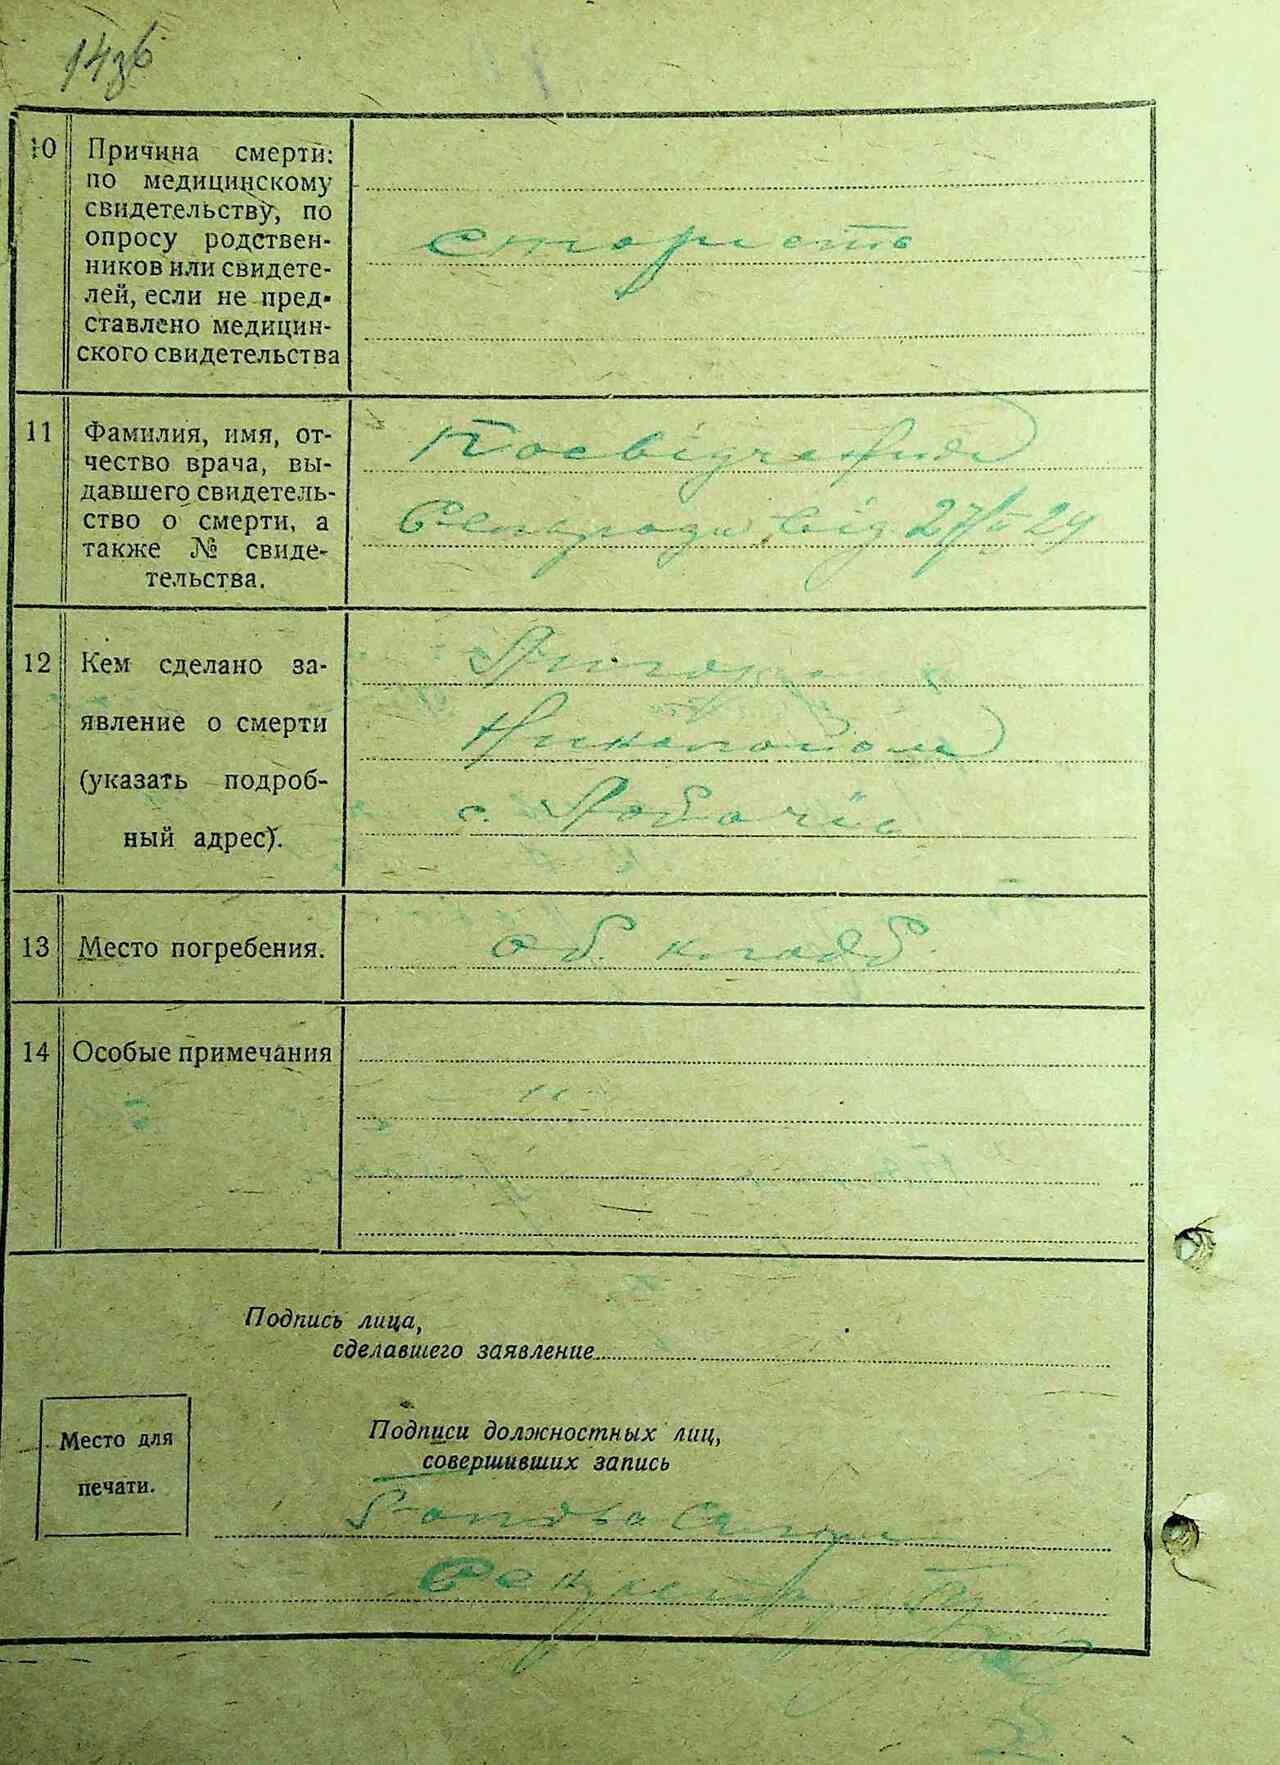 143б
10 Причина смерти:
по медицинскому
свидетельству, по
опросу родствен-
ников или свидете-
лей, если не пред-
ставлено медицин-
ского свидетельства
старість
11 Фамилия, имя, от-
чество врача, вы-
давшего свидетель-
ство о смерти, а
также № свиде-
тельства.
Посвідчення
Сельради від 27/
12 Кем сделано за-
явление о смерти
(указать подроб-
ный адрес).
с.
13 Место погребения.
Об. кладб.
14 Особые примечания
Подпись лица,
сделавшего заявление
Место для
печати.
Подписи должностных лиц,
совершивших запись
Голова
Секретар